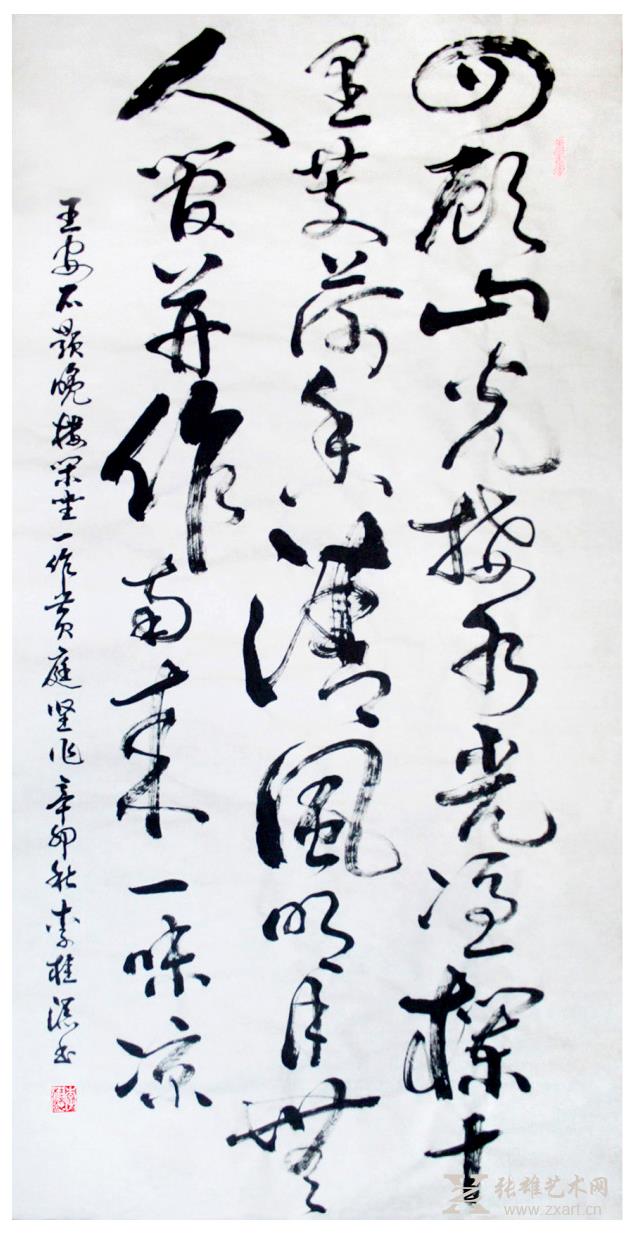 四顾山光接水光憑欄十
里芰荷香清風明月無
人管并作南来一味凉
王安石题晚楼闲坐一作黄庭坚作辛卯秋李桂书
张雄艺术网
www.zxart.cn